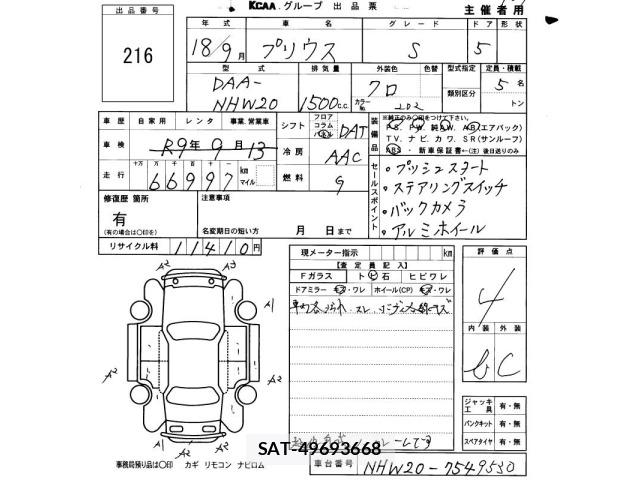 出品番号
KCAA グループ 出品票
主催者用
216
年式 車名 グレード ドア 形状
18/9月 プリウス S 5
型式 排気量 外装色 色替 型式指定 定員・積載
DAA-
NHW20 1500c.c. クロ 5名
カラーNo. 202 類別区分 トン
車歴 自家用 レンタ 事業.営業車
シフト フロア コラム DAT
車検 R9年9月13
冷房 AAC
走行 十万 万 千 百 十 66997 km マイル
燃料 g
装備品
※純正のみ○印をつけて下さい。
P.S. P.W. 純A.W. A.B(エアバック)
T.V. ナビ. カワ. S.R(サンルーフ)
ABS ・新車保証書←(注)後日送りのみ
セールスポイント
・プッシュスタート
・ステアリングスイッチ
・バックカメラ
・アルミホイール
修復歴 箇所
有
(有の場合は○印を)
注意事項
名変期日の短い方 月 日まで
リサイクル料 11410円
現メーター指示 km
【査定員記入】
Fガラス トビ石 ヒビワレ
ドアミラー キズ・ワレ ホイール(CP) キズ・ワレ
評価点
4
内装 外装
b C
A2 A2
A1
A2 A2
A1 A2 A1
ジャッキ工具 有・無
パンクキット 有・無
スペアタイヤ 有・無
SAT-49693668
事務局預り品は○印 カギ リモコン ナビロム
車台番号 NHW20-7549550